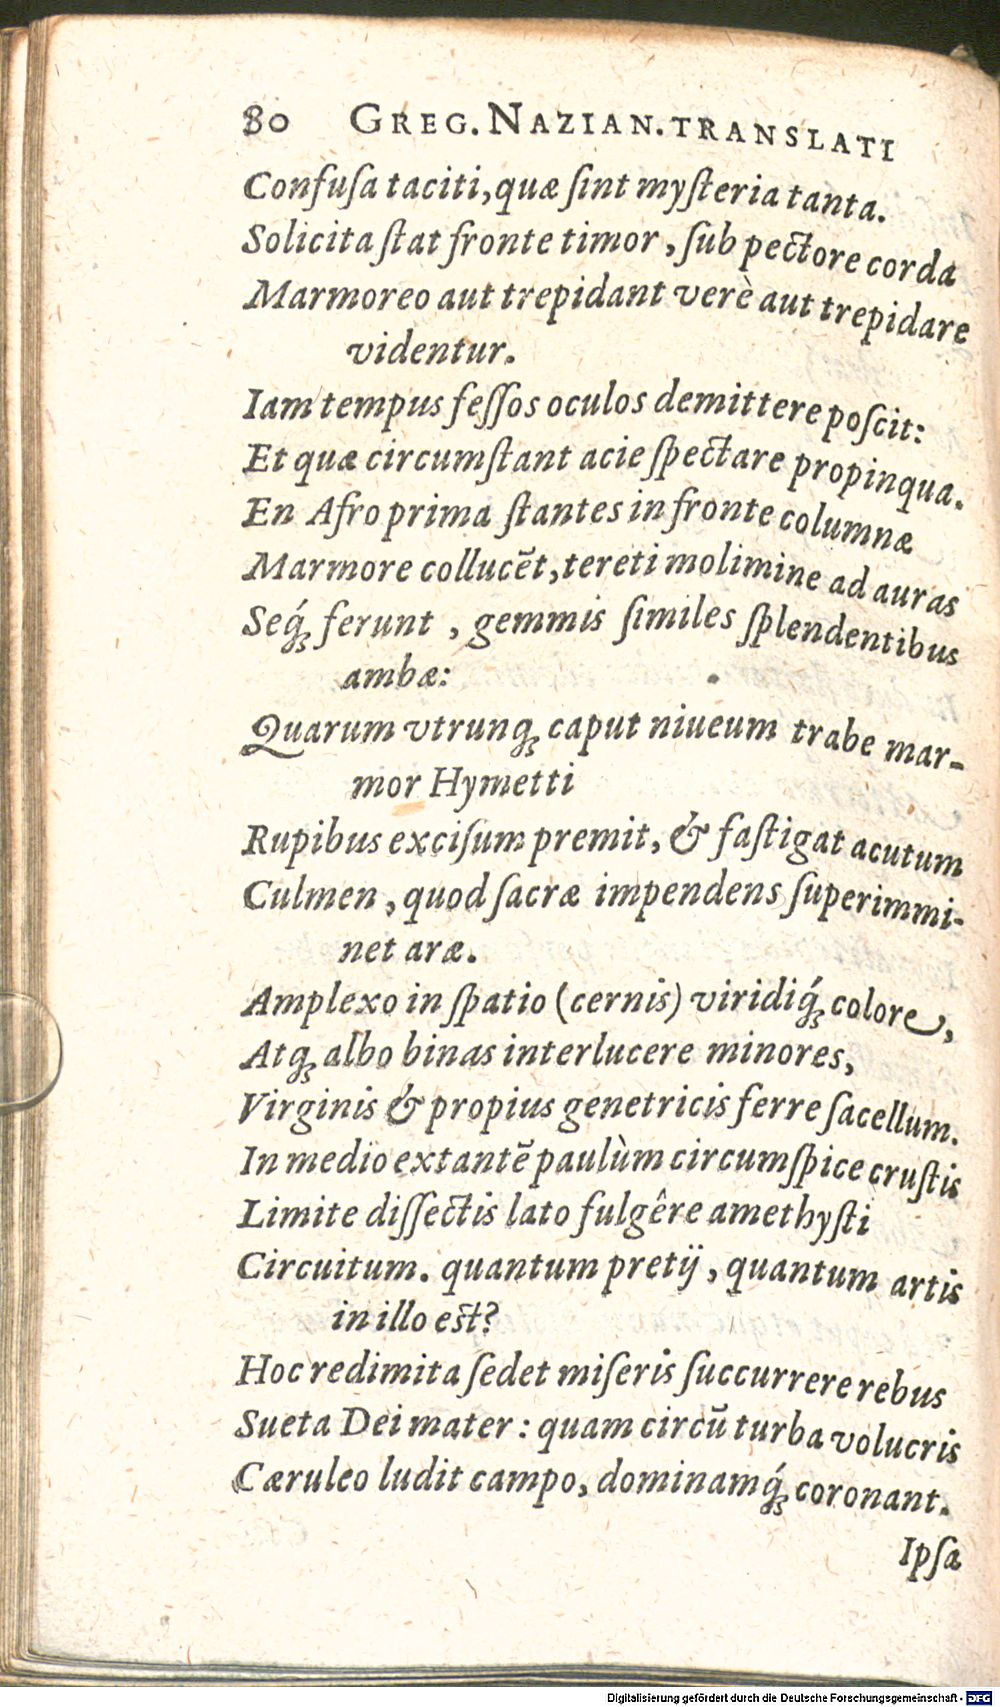 80 GREG. NAZIAN. TRANSLATI
Confuſa taciti, quæ ſint myſteria tanta.
Solicita ſtat fronte timor, ſub pectore corda
Marmoreo aut trepidant verè aut trepidare
videntur.
Iam tempus feſſos oculos demittere poſcit:
Et quæ circumſtant acie ſpectare propinqua.
En Afro prima ſtantes in fronte columnæ
Marmore collucẽt, tereti molimine ad auras
Seq́ꝫ ferunt, gemmis ſimiles ſplendentibus
ambæ:
Quarum vtrunqꝫ caput niueum trabe mar-
mor Hymetti
Rupibus exciſum premit, & faſtigat acutum
Culmen, quod ſacræ impendens ſuperimmi-
net aræ.
Amplexo in ſpatio (cernis) viridiq́ꝫ colore,
Atqꝫ albo binas interlucere minores,
Virginis & propius genetricis ferre ſacellum.
In medio extantẽ paulùm circumſpice cruſtis
Limite diſſectis lato fulgêre amethyſti
Circuitum. quantum pretij, quantum artis
in illo eſt?
Hoc redimita ſedet miſeris ſuccurrere rebus
Sueta Dei mater: quam circũ turba volucris
Cæruleo ludit campo, dominamq́ꝫ coronant.
Ipſa
Digitalisierung gefördert durch die Deutsche Forschungsgemeinschaft - DFG